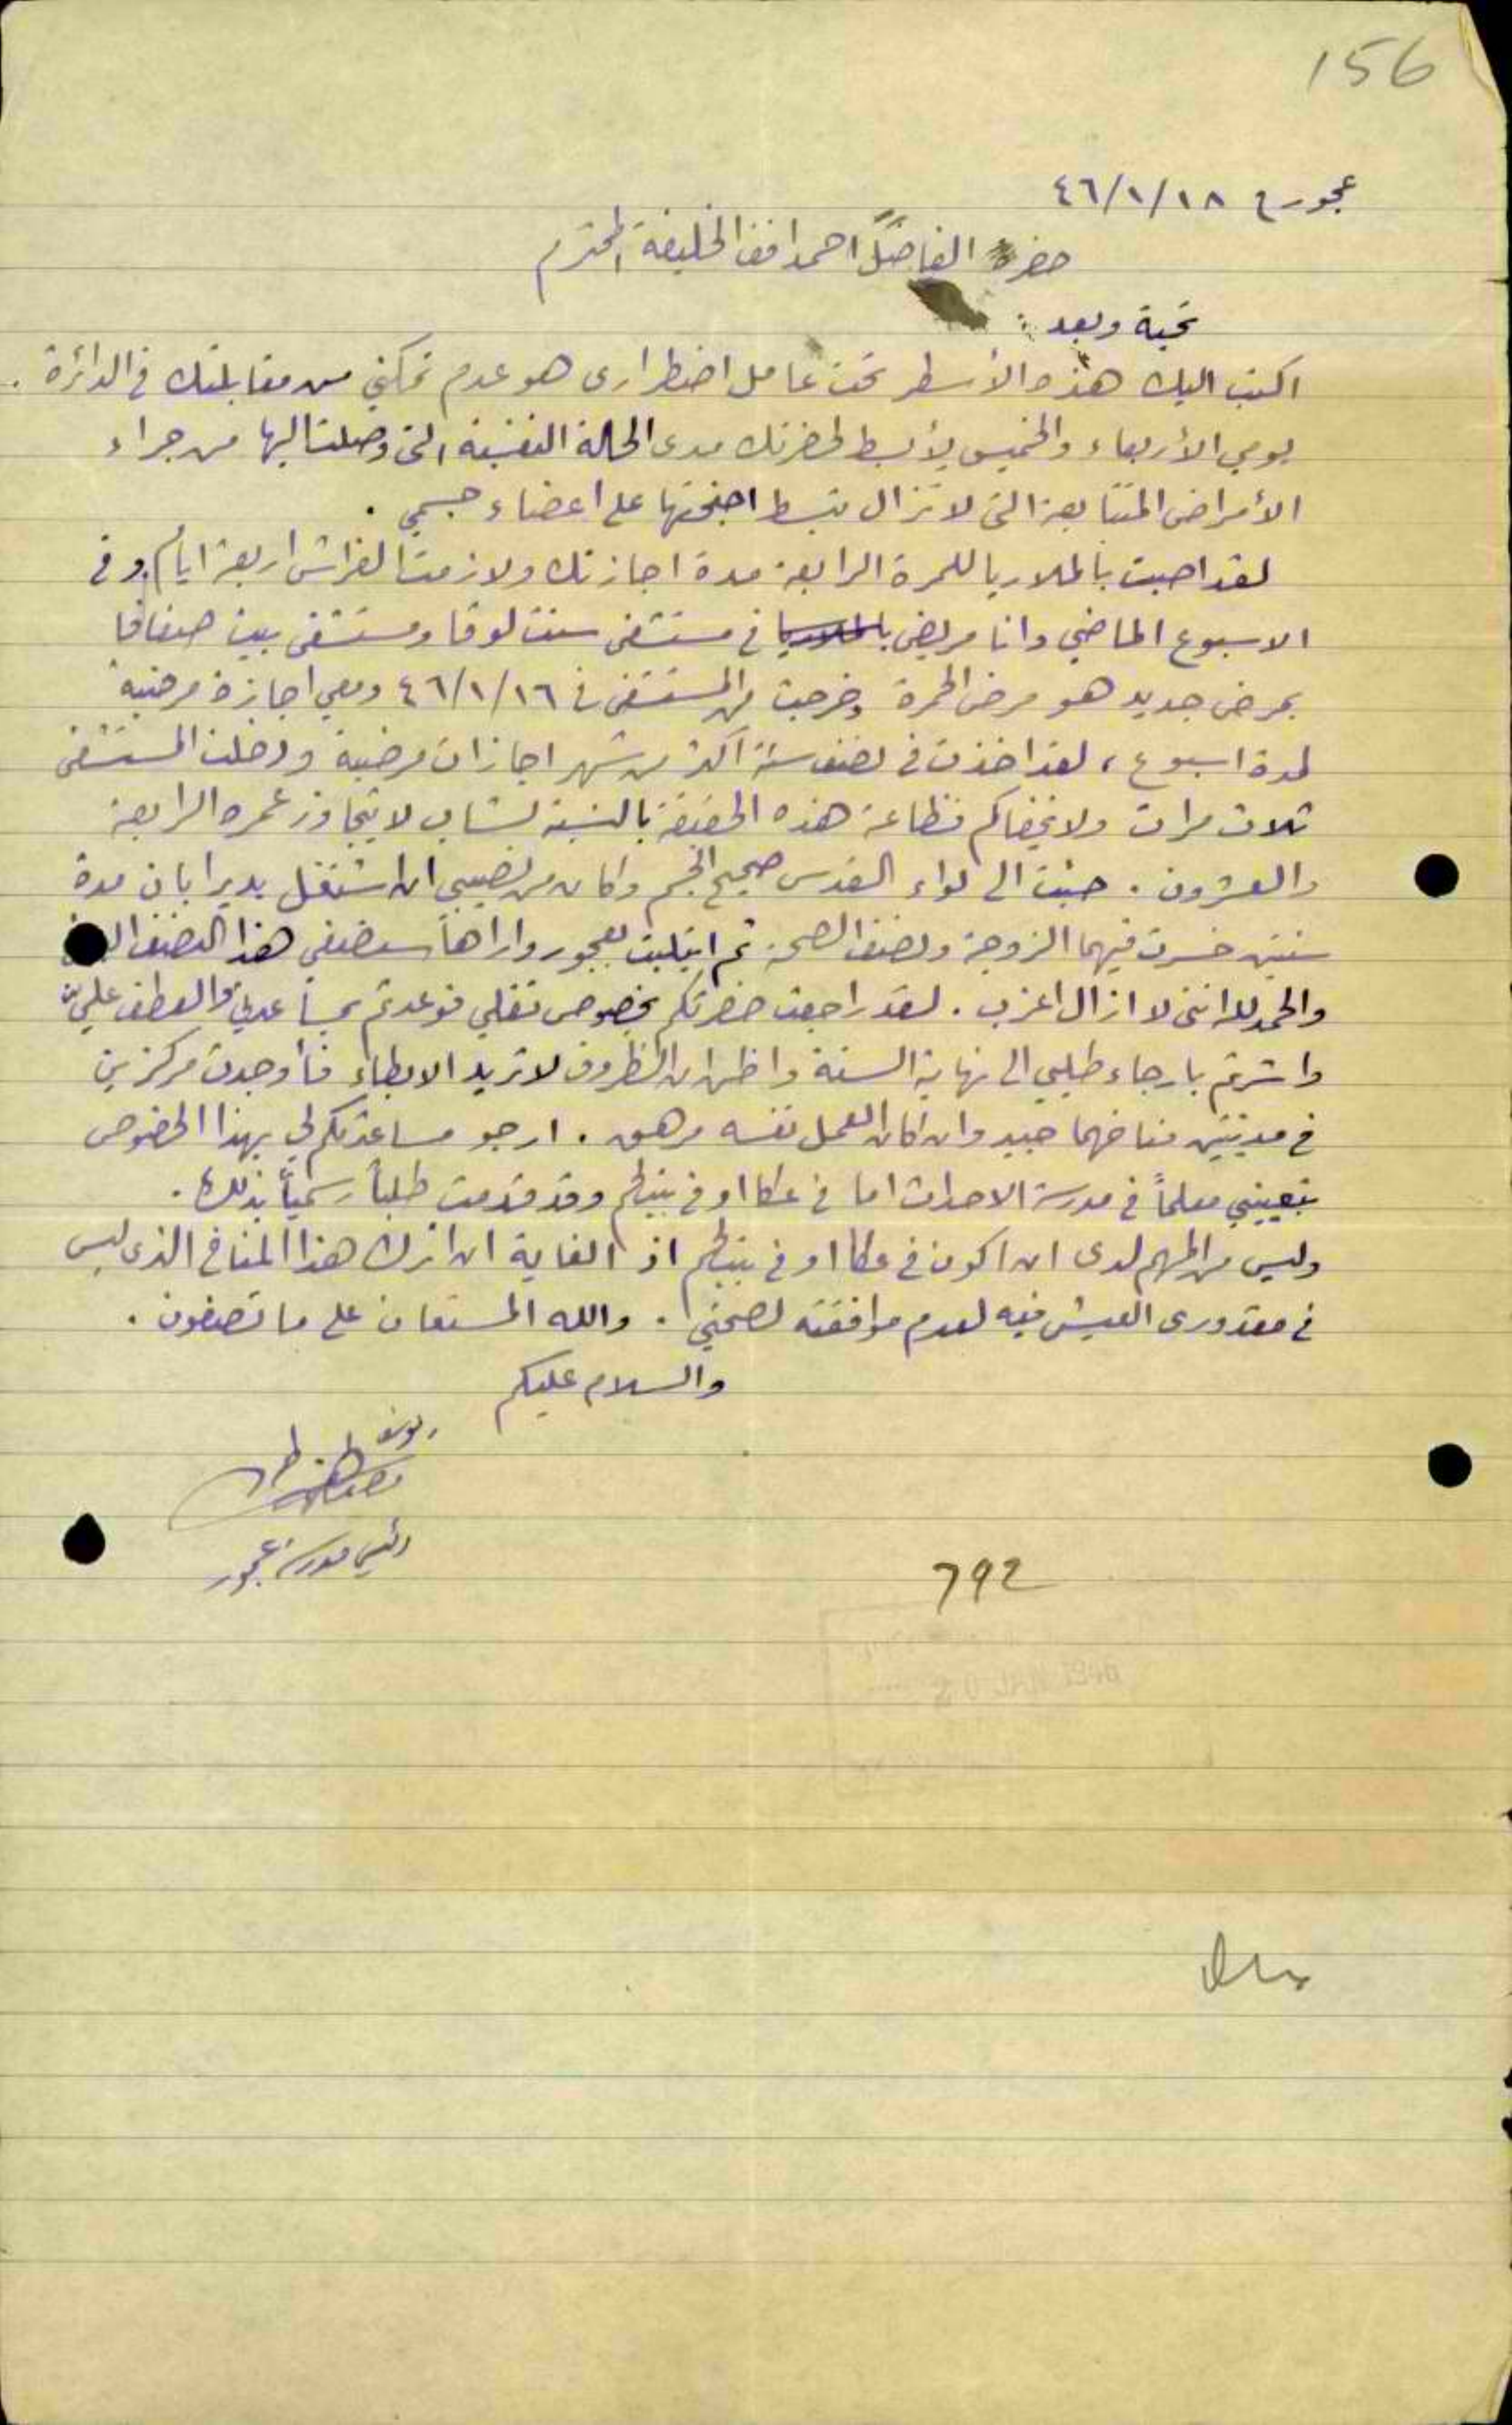 156
عجور في ٤٦/١/١٨
حضرة الفاضل احمد افندي الخليفة المحترم
تحية وبعد :
اكتب اليك هذه الأسطر تحت عامل اضطراري هو عدم تمكني من مقابلتك في الدائرة .
يومي الأربعاء والخميس لأبسط لحضرتك مدى الحالة النفسية التي وصلت اليها من جراء
الأمراض المتتابعة التي لا تزال تبسط اجنحتها على اعضاء جسمي .
لقد اصبت بالملاريا للمرة الرابعة مدة اجازتك ولازمت الفراش اربعة ايام وفي
الاسبوع الماضي وانا مريض بالملاريا في مستشفى سنت لوقا ومستشفى بيت صفافا
بمرض جديد هو مرض الحمرة وخرجت من المستشفى في ٤٦/١/١٦ ومعي اجازة مرضية
لمدة اسبوع ، لقد اخذت في نصف سنة اكثر من شهر اجازات مرضية ودخلت المستشفى
ثلاث مرات ولا يخفاكم فظاعة هذه الحقيقة بالنسبة لشاب لا يتجاوز عمره الرابعة
والعشرون . جئت الى لواء القدس صحيح الجسم وكان من نصيبي ان اشتغل بدير ابان مدة
سنتين خسرت فيهما الزوجة ونصف الصحة ثم ابتليت بعجور واراها ستضفي هذا النصف
والحمد لله انني لا ازال اعزب . لقد راجعت حضرتكم بخصوص نقلي فوعدتم بمساعدتي والعطف علي
واشرتم بارجاء طلبي الى نهاية السنة واظن ان الظروف لا تريد الابطاء فأوجدت مركزين
في مدينتين مناخهما جيد وان كان العمل نفسه مرهق . ارجو مساعدتكم لي بهذا الخصوص
بتعييني معلماً في مدرسة الاحداث اما في عكا او في بيت لحم وقد قدمت طلباً رسمياً بذلك .
وليس من المهم لدى ان اكون في عكا او في بيت لحم اذ الغاية ان اترك هذا المناخ الذي ليس
في مقدوري العيش فيه لعدم موافقته لصحتي . والله المستعان على ما تصفون .
والسلام عليكم
رئيس مدرسة عجور
792